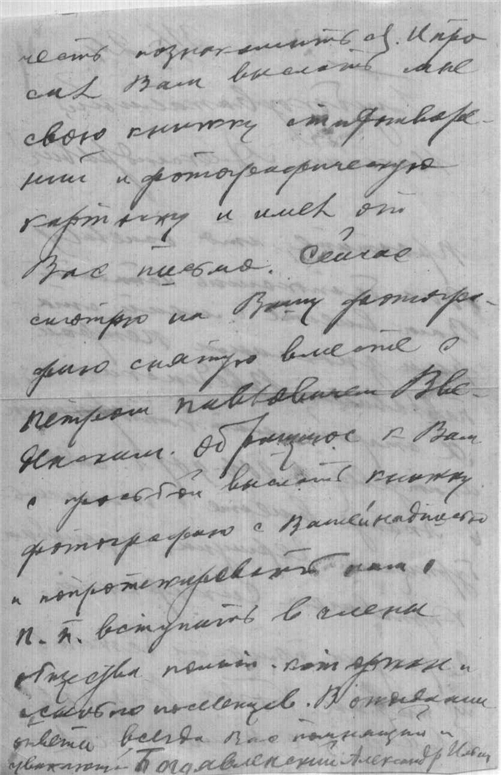 честь познакомиться. И про
сил Вам выслать мне
свою книжку стихотваре-
ний и фотографическую
картинку и имел от
Вас письмо. Сейчас
смотрю на Вашу фотогра-
фию снятую вместе с
Петром Павловичем Вве-
денским. Обращаюс к Вам
с просьбой выслать книжку
фотографию с Вашей надписью
и попротежировать нам
п. п. вступить в члены
общества полит. каторжан и
ссыльно поселенцев. В ожидании
ответа всегда Вас помнящий и
уважающий Богоявленский Александр